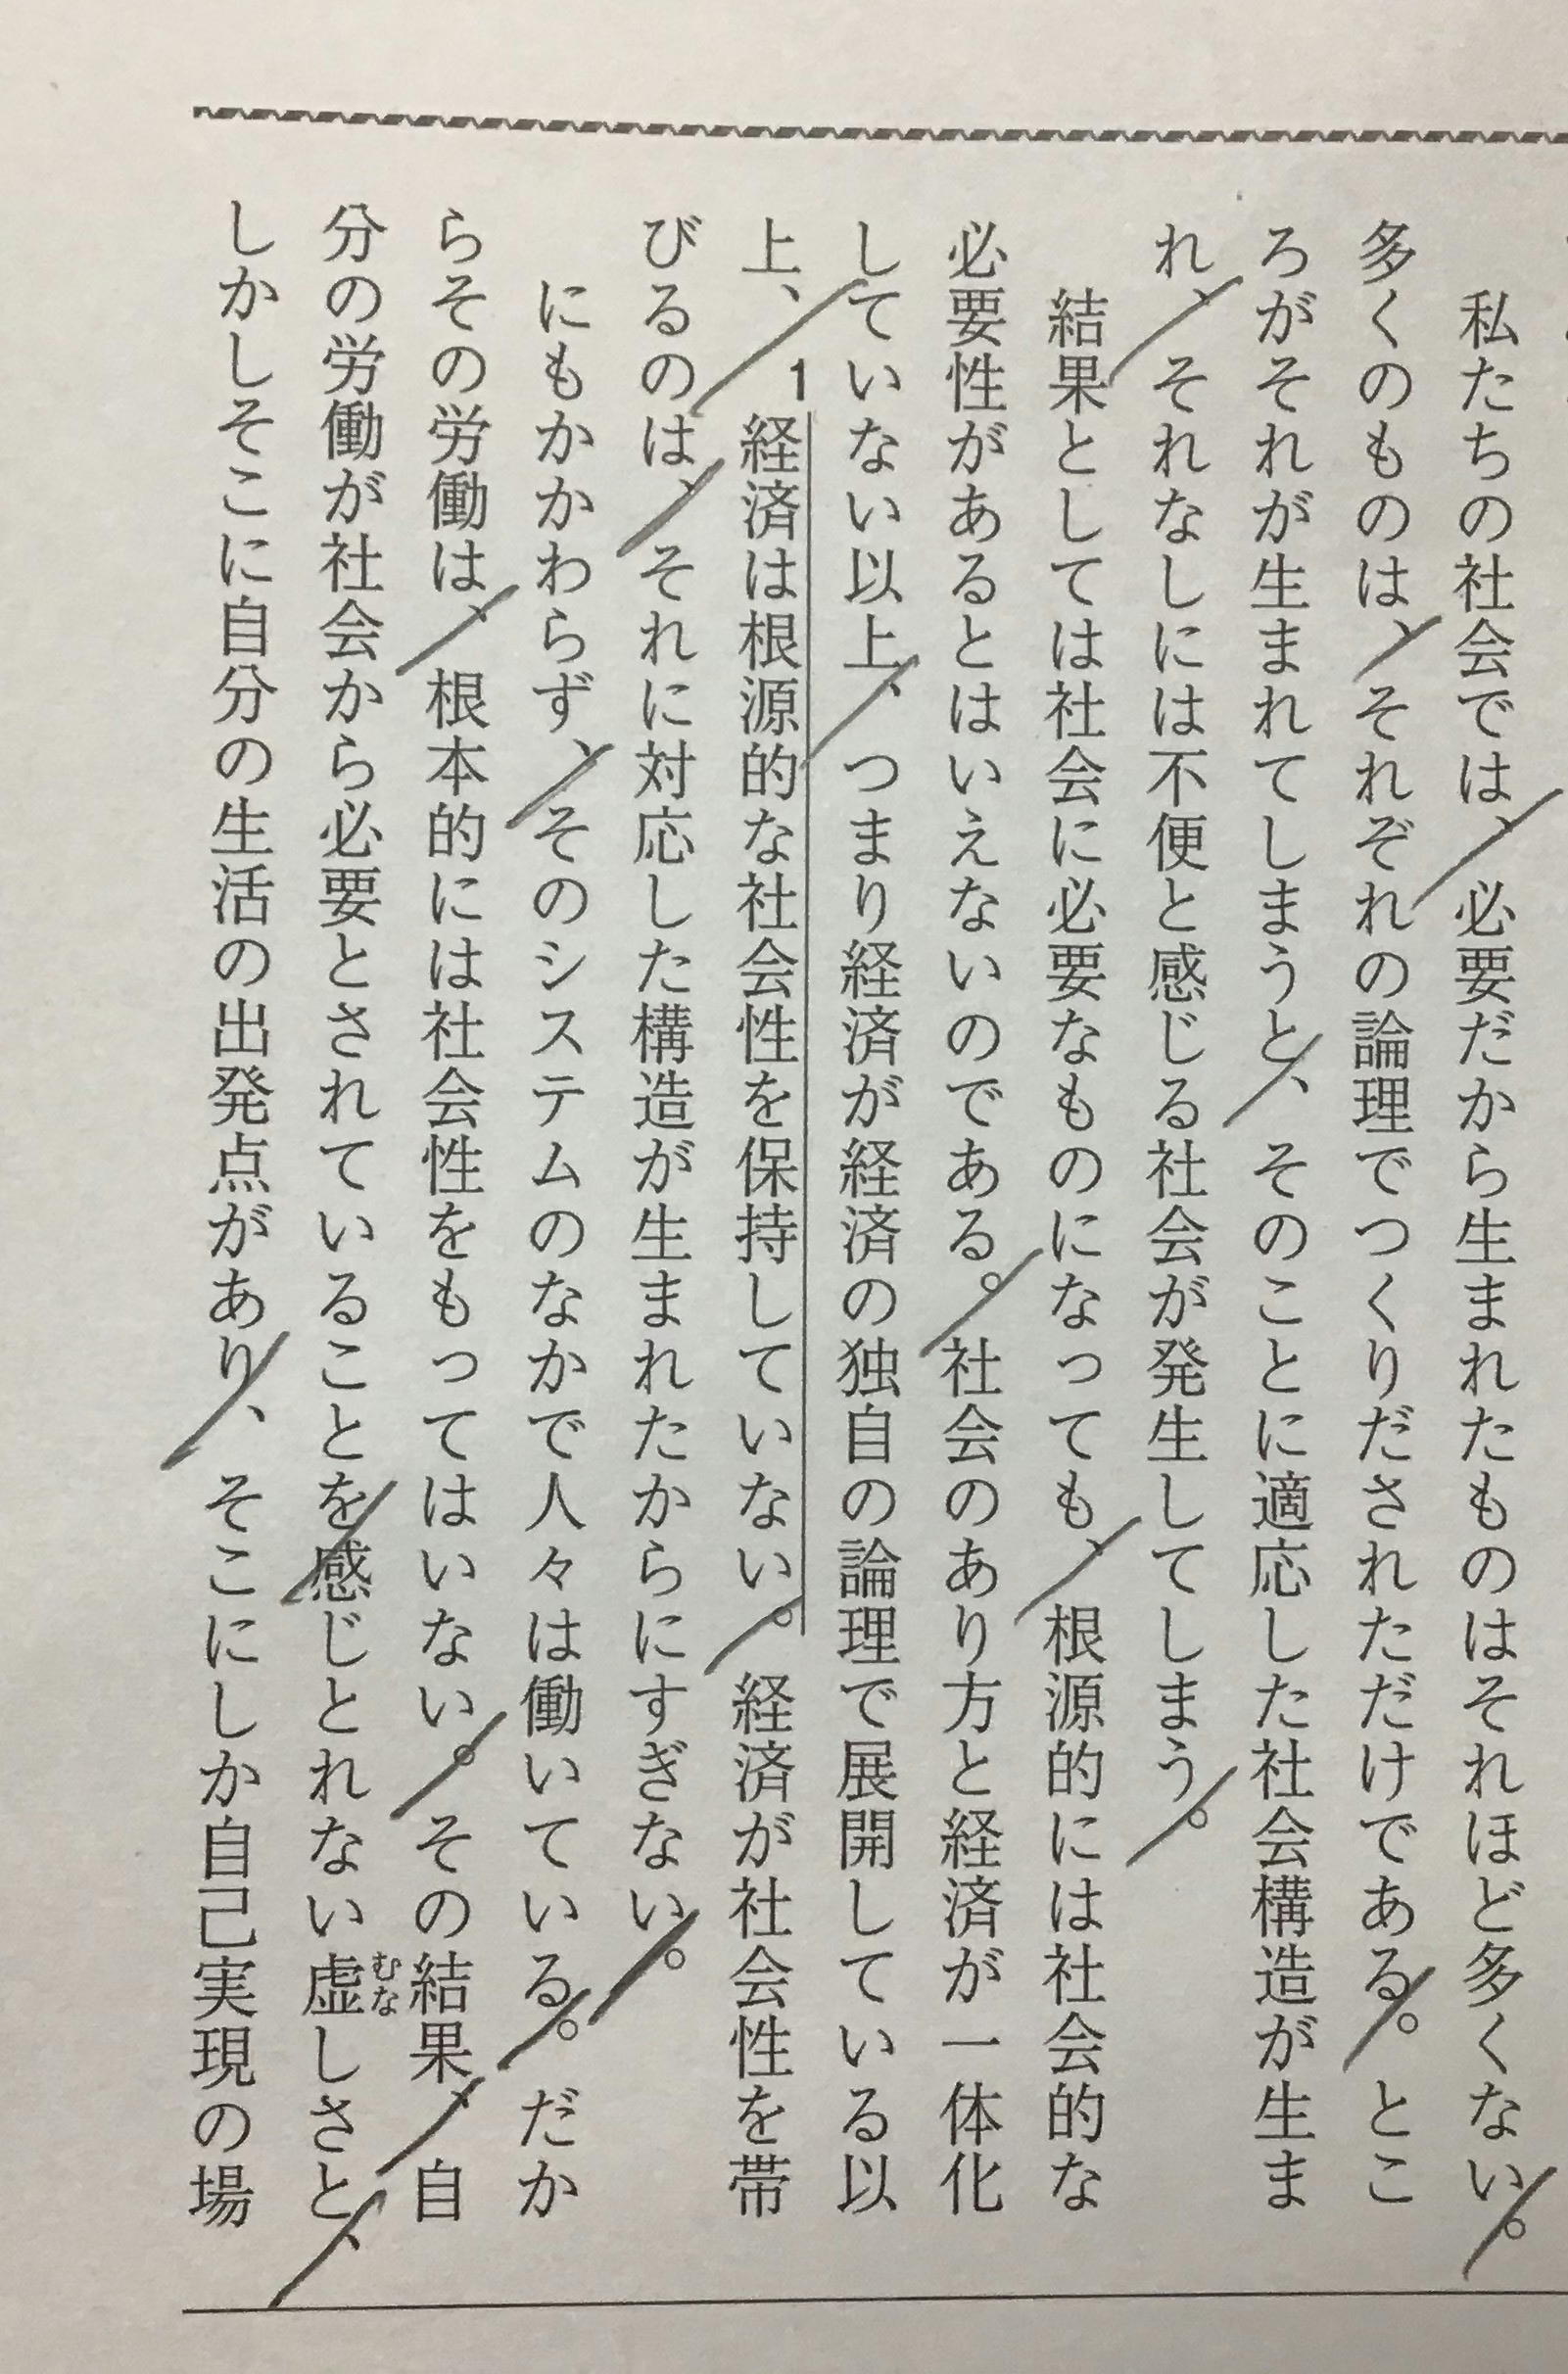 私たちの社会では、必要だから生まれたものはそれほど多くない。
多くのものは、それぞれの論理でつくりだされただけである。とこ
ろがそれが生まれてしまうと、そのことに適応した社会構造が生ま
れ、それなしには不便と感じる社会が発生してしまう。
結果としては社会に必要なものになっても、根源的には社会的な
必要性があるとはいえないのである。社会のあり方と経済が一体化
していない以上、つまり経済が経済の独自の論理で展開している以
上、1経済は根源的な社会性を保持していない。経済が社会性を帯
びるのは、それに対応した構造が生まれたからにすぎない。
にもかかわらず、そのシステムのなかで人々は働いている。だか
らその労働は、根本的には社会性をもってはいない。その結果、自
分の労働が社会から必要とされていることを感じとれない虚むなしさと、
しかしそこに自分の生活の出発点があり、そこにしか自己実現の場